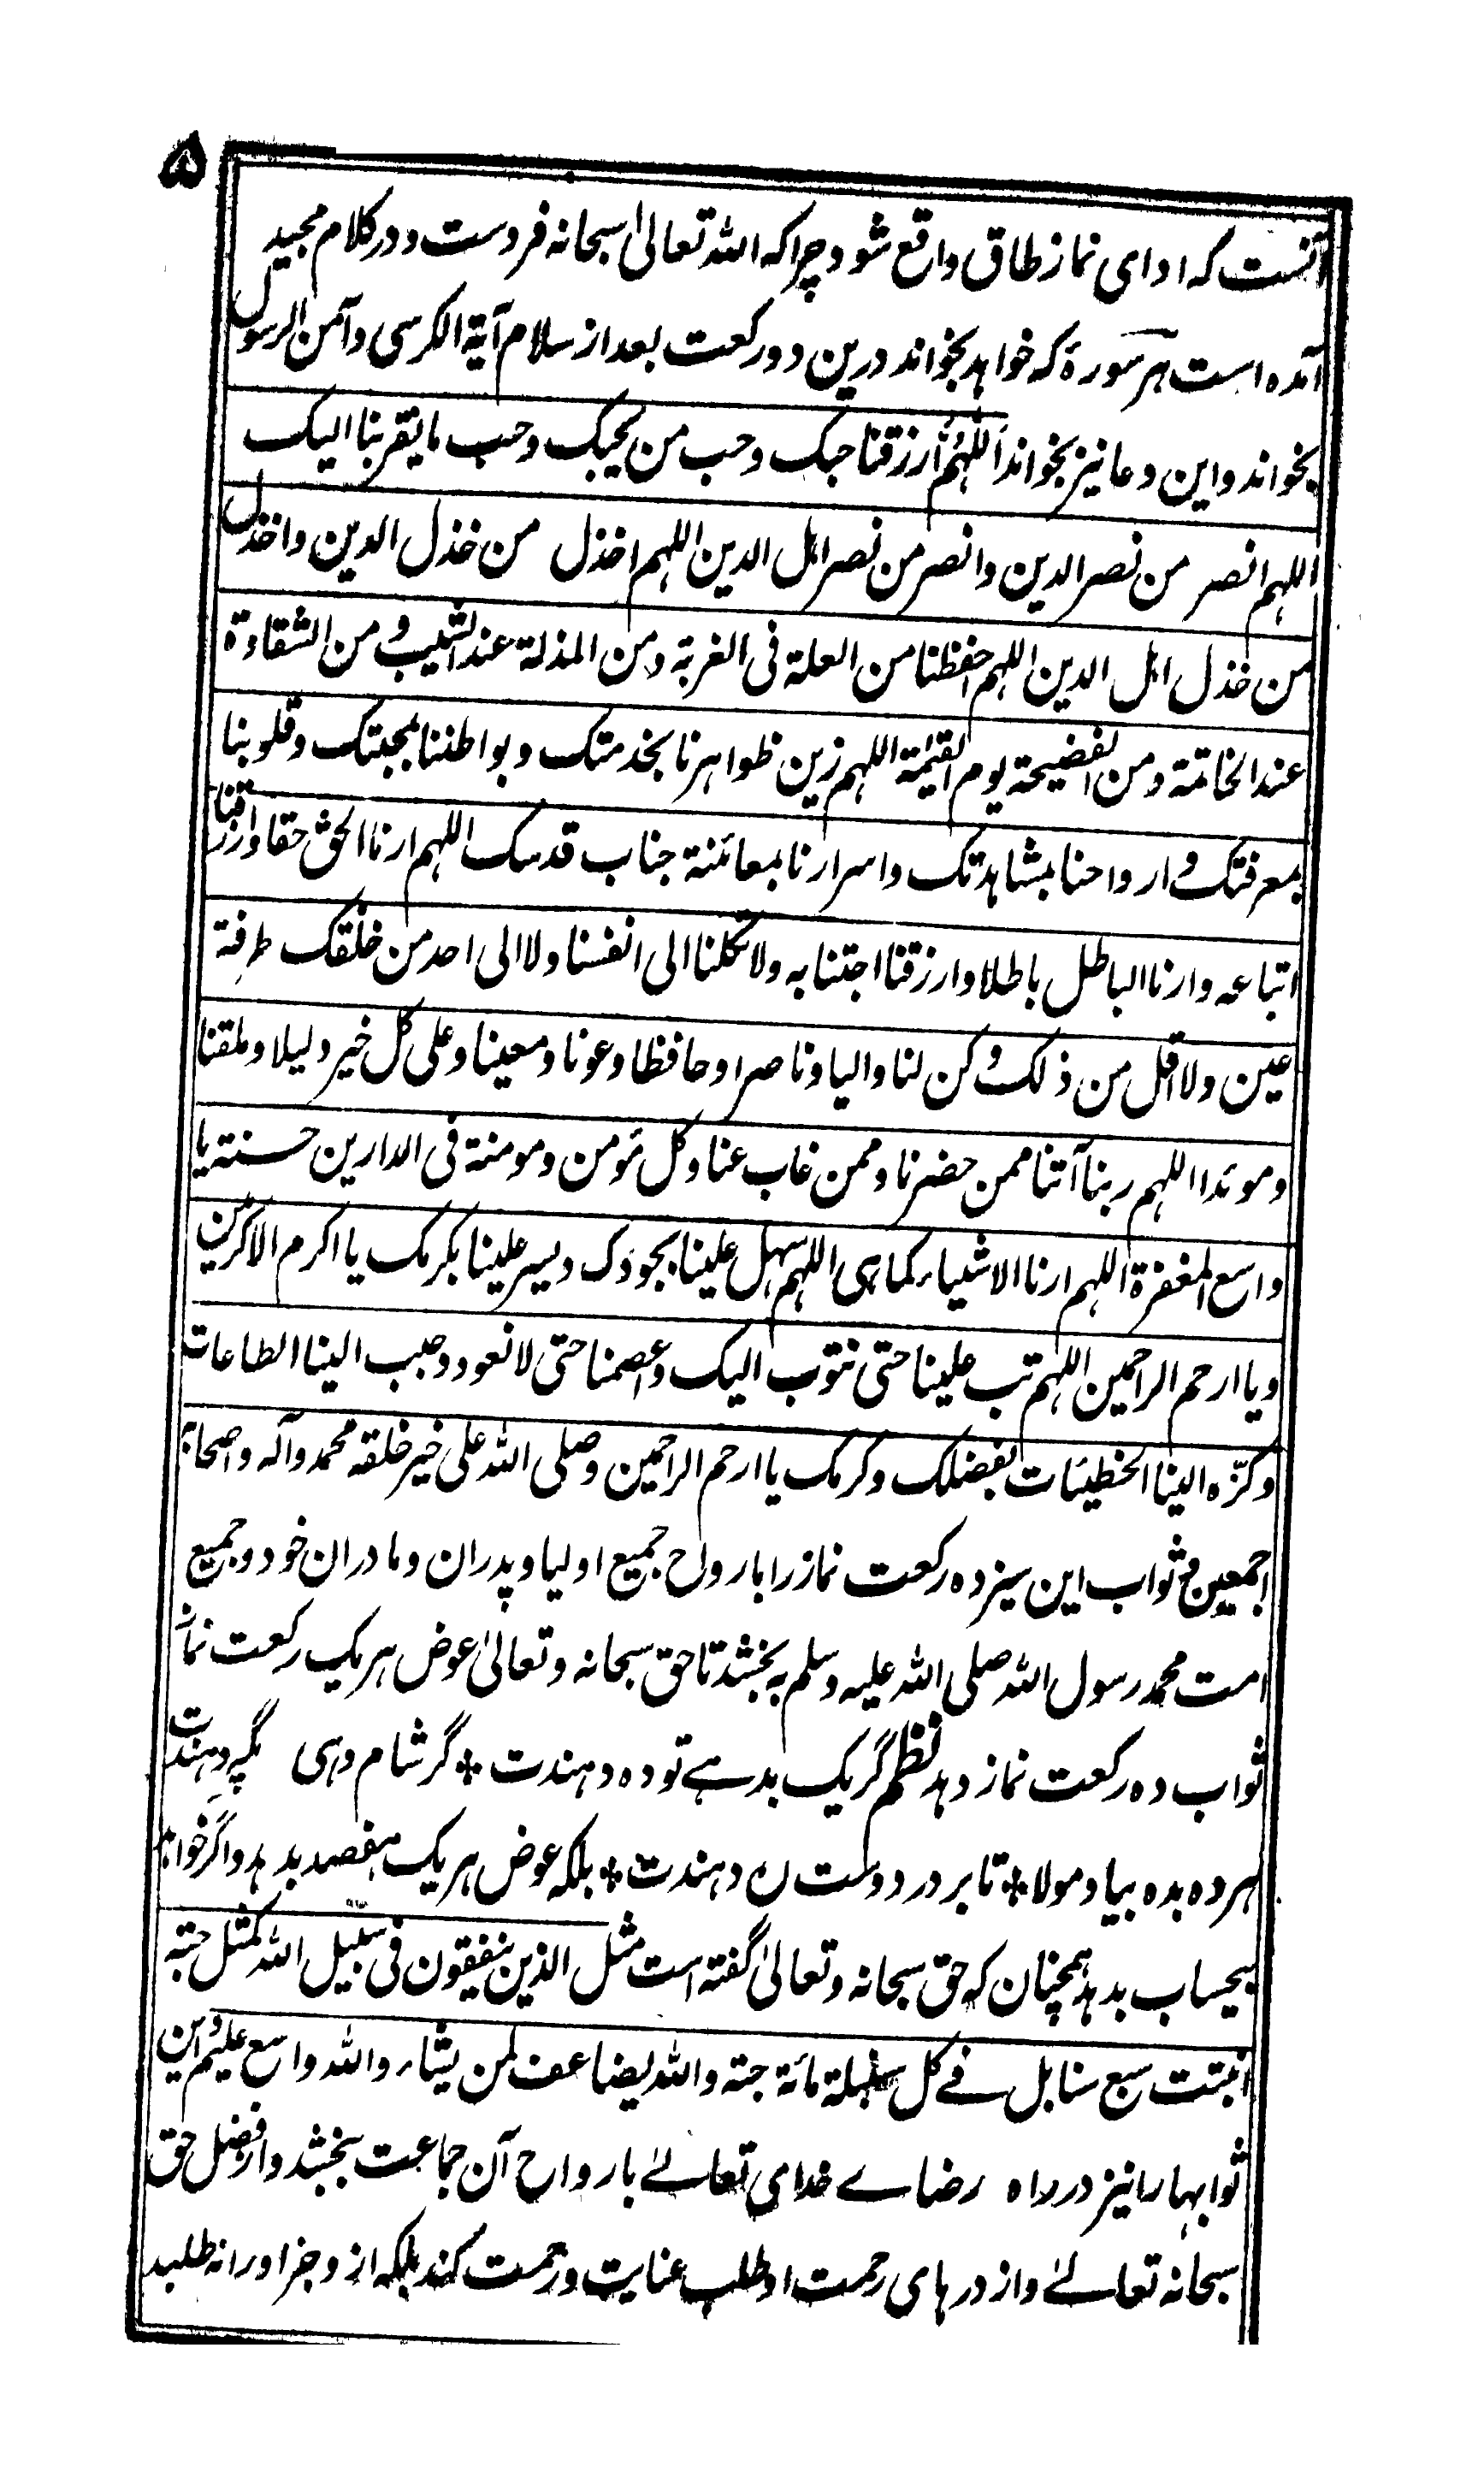 ۵
آنست که ادای نماز طاق واقع شود چرا که الله تعالیٰ سبحانه فردست و در کلام مجید
آمده است هر سورهٔ که خواهد بخواند درین دو رکعت بعد از سلام آیة الکرسی و آمن الرسول
بخواند و این دعا نیز بخواند اللهم ارزقنا حبک و حب من یحبک و حب ما یقربنا الیک
اللهم انصر من نصر الدین و انصر من نصر اهل الدین اللهم اخذل من خذل الدین و اخذل
من خذل اهل الدین اللهم احفظنا من العلة فی الغربة و من المذلة عند الشیب و من الشقاوة
عند الخاتمة و من الفضیحة یوم القیٰمة اللهم زین ظواهرنا بخدمتک و بواطننا بمحبتک و قلوبنا
بمعرفتک و ارواحنا بمشاهدتک و اسرارنا بمعائنة جناب قدسک اللهم ارنا الحق حقا و ارزقنا
اتباعه و ارنا الباطل باطلا و ارزقنا اجتنابه و لا تکلنا الی انفسنا و لا الی احد من خلقک طرفة
عین و لا اقل من ذلک و کن لنا والیا و ناصرا و حافظا و عونا و معینا و علی کل خیر دلیلا و ملقنا
و موئدا اللهم ربنا آتنا ممن حضرنا و ممن غاب عنا و کل مؤمن و مومنة فی الدارین حسنة یا
واسع المغفرة اللهم ارنا الاشیاء کما هی اللهم سهل علینا بجودک و یسر علینا بکرمک یا اکرم الاکرمین
و یا ارحم الراحمین اللهم تب علینا حتی نتوب الیک و اعصمنا حتی لا نعود و حبب الینا الطاعات
و کرّه الینا الخطیئات بفضلک و کرمک یا ارحم الراحمین و صلی الله علی خیر خلقه محمد و آله و اصحابه
اجمعین و ثواب این سیزده رکعت نماز را بارواح جمیع اولیا و پدران و مادران خود و جمیع
امت محمد رسول الله صلی الله علیه و سلم به بخشد تا حق سبحانه و تعالیٰ عوض هر یک رکعت نماز
ثواب ده رکعت نماز دهد نظم گر یک بدهے تو ده دهندت * گر شام دهی پگه دهندت
هر ده بده بیاد مولا * تا بر در دوست ره دهندت * بلکه عوض هر یک هفصد بدهد و اگر خواهد
بیحساب بدهد همچنان که حق سبحانه و تعالیٰ گفته است مثل الذین ینفقون فی سبیل الله کمثل حبة
انبتت سبع سنابل فے کل سنبلة مائة حبة و الله یضاعف لمن یشاء و الله واسع علیم و این
ثوابها را نیز در راه رضاے خدای تعالےٰ بارواح آن جماعت بخشد و از فضل حق
سبحانه تعالےٰ و از درهای رحمت او طلب عنایت و رحمت کند بلکه از و جز او را نه طلبد